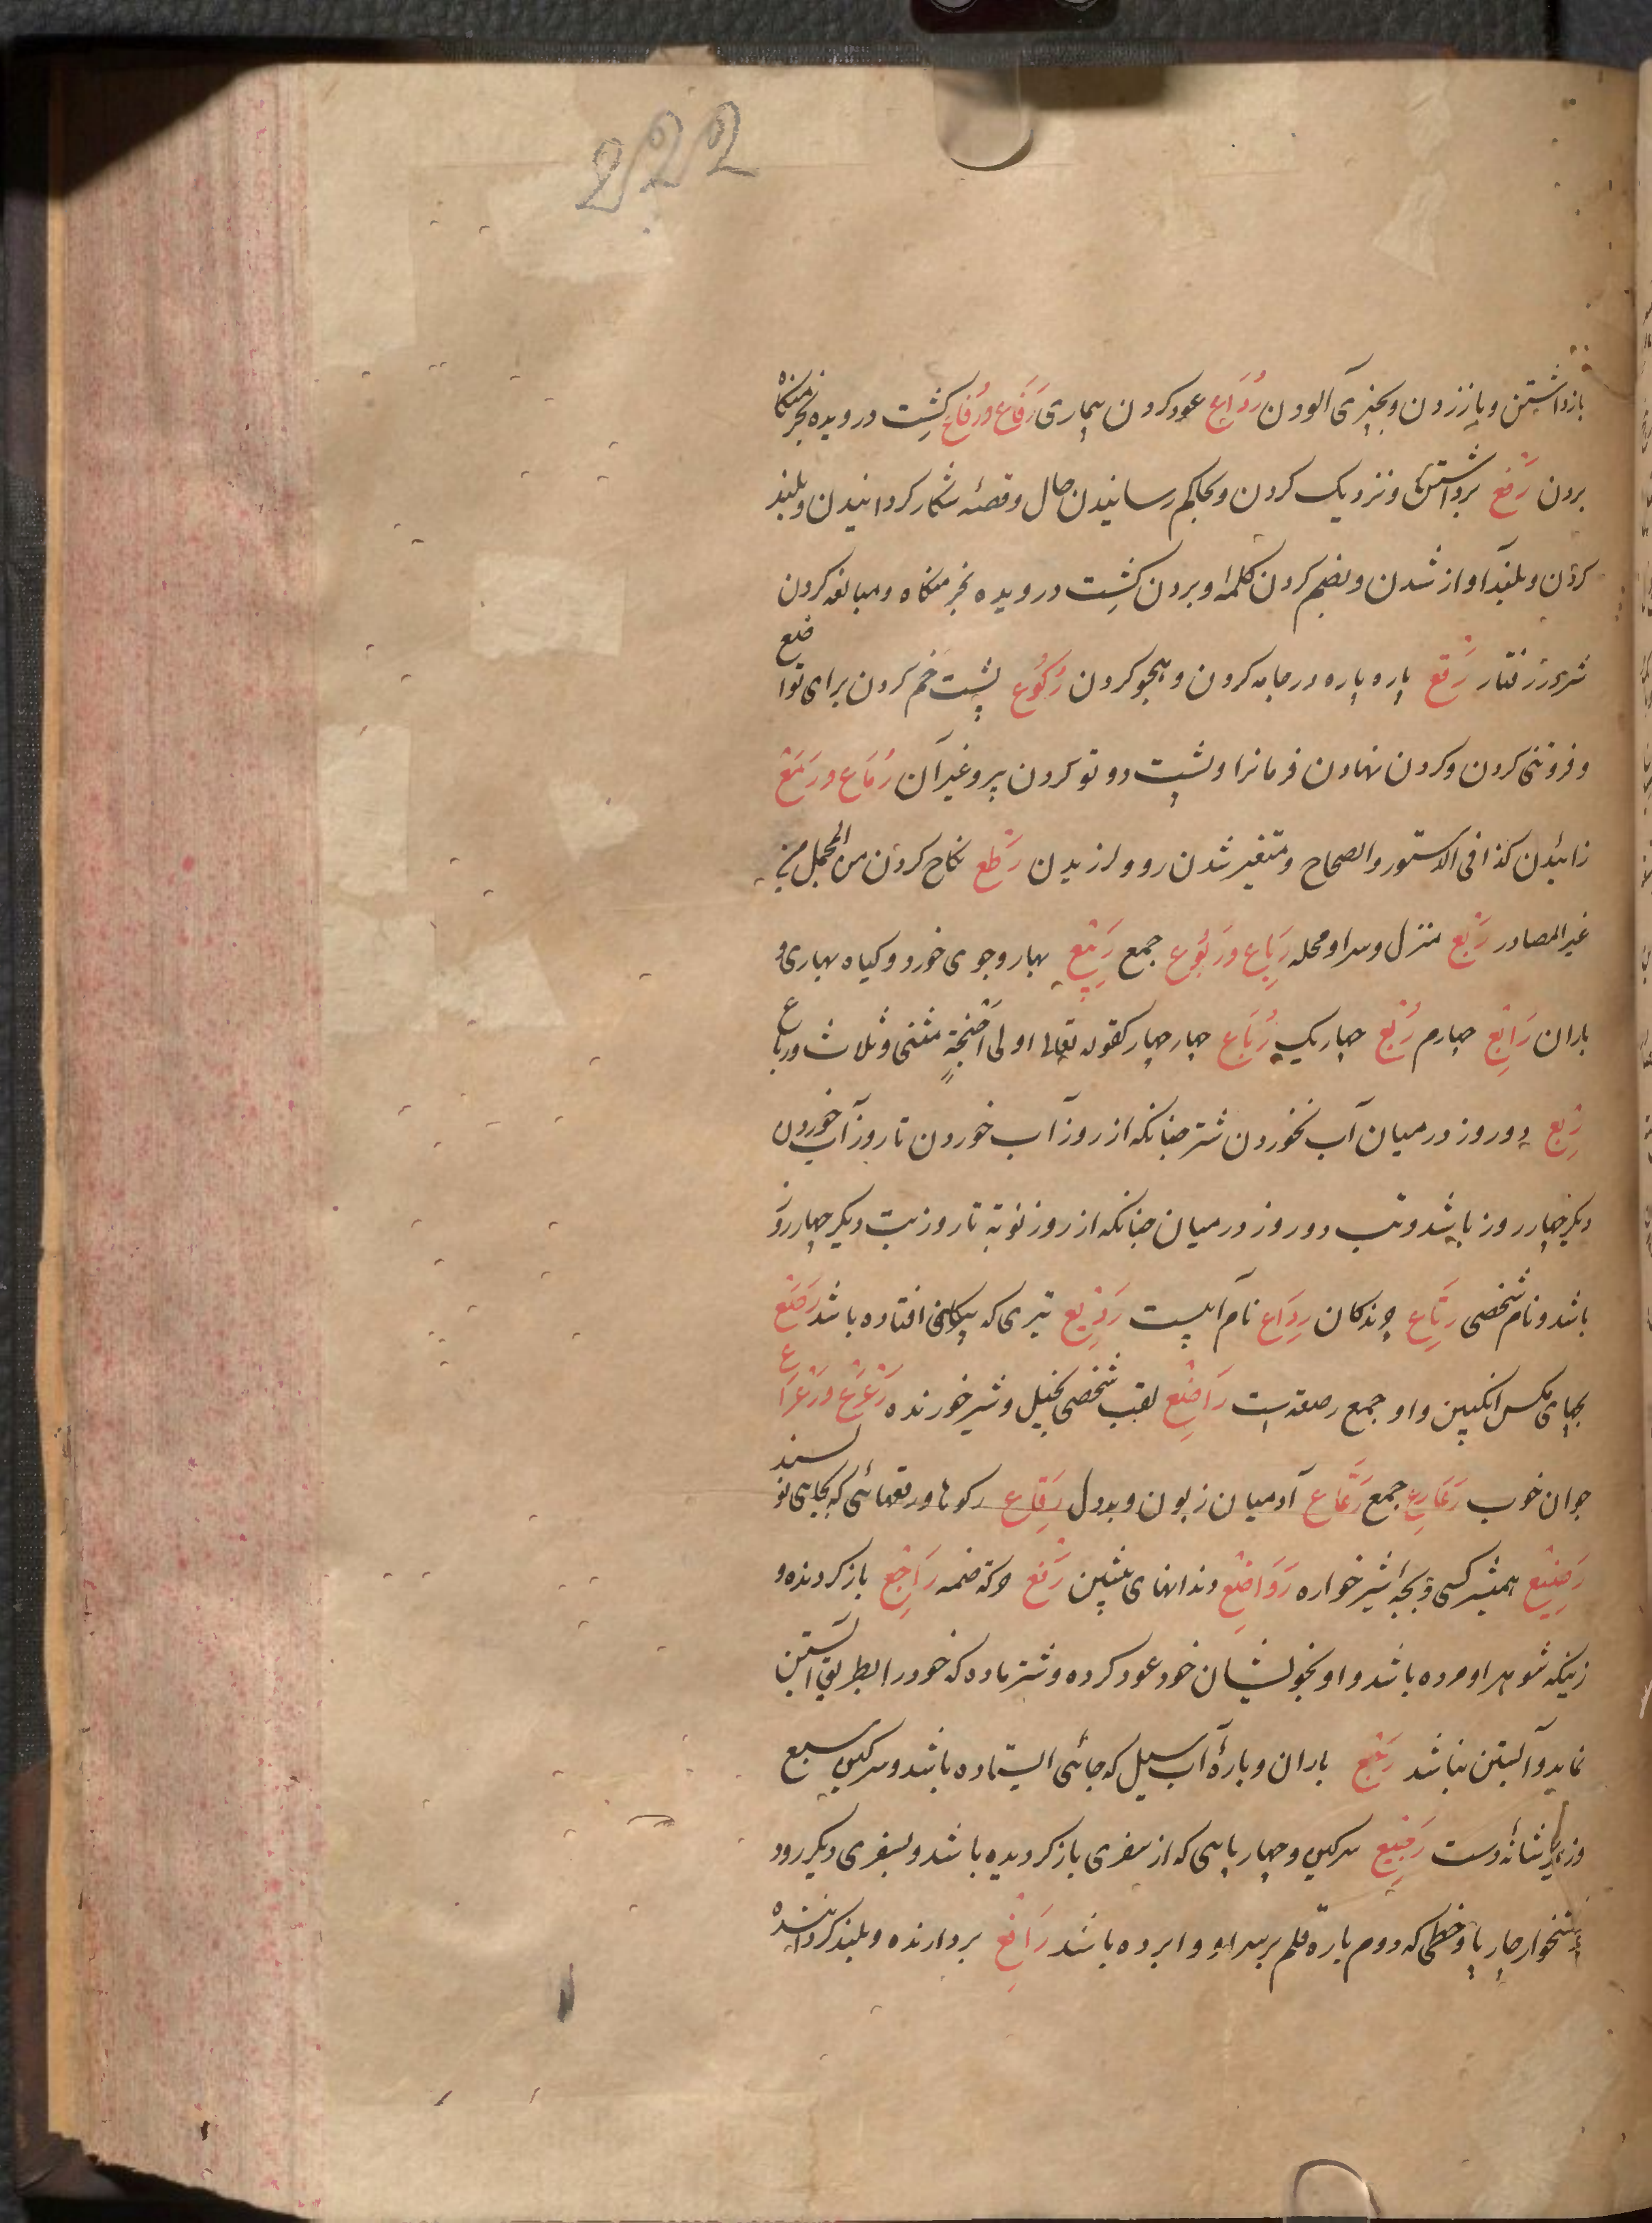 222
بازداشتن و باز زدن و بچیزی آلودن رُدَاع عود کردن بیماری رَفَاع و رُفَاع کشت درویده بخرمنکاه
بردن رَفع برداشتن و نزدیک کردن و بحاکم رسانیدن حال و قصّه شکار کردانیدن و بلند
کردن و بلند آواز شدن و بضم کردن کلمه و بردن کشت درویده بخرمنکاه و مبالغه کردن
شتر در رفتار رَقع پاره پاره در جامه کردن و هجو کردن رُکُوع پشت خم کردن برای تواضع
و فروتنی کردن و کردن نهادن فرمانرا و پشت دو تو کردن پیر و غیر آن رُمَاع و رَمَع
زائیدن کذا فی الدستور والصحاح و متغیر شدن رو و لرزیدن رَطع نکاح کردن من المجمل من
غیر المصادر رَبع منزل و سرا و محله رِبَاع و رُبُوع جمع رَبِیع بهار و جوی خورد و کیاه بهاری و
باران رَابِع چهارم رُبع چهاریک رُبَاع چهار چهار کقوله تعالی اولی اَجْنِحَةٍ مثنی و ثلاث و رباع
رِبع دو روز در میان آب نخوردن شتر چنانکه از روز آب خوردن تا روز آب خوردن
دیکر چهار روز باشد و تب دو روز در میان چنانکه از روز نوبة تا روز تب دیکر چهار روز
باشد و نام شخصی رِتَاع چرندکان رِدَاع نام آبیست رَدِیع تیری که پیکانش افتاده باشد رَصَع
بچهای مکس انکبین و او جمع رصعه است رَاضِع لقب شخصی بخیل و شیر خورنده رَعْرَع و رَعْرَاع
جوان خوب رَعَارِع جمع رَعَاع آدمیان زبون و بددل رِقَاع رکوها و رقعهائی که بجایی نویسند
رَضِیع همشیر کسی و بچه شیرخواره رَوَاضِع دندانهای پیشین رَفع حرکة ضمه رَاجِع باز کردنده و
زنیکه شوهر او مرده باشد و او بخویشان خود عود کرده و شتر ماده که خود را بطریق آبستن
نماید و آبستن نباشد رَجع باران و بارهٔ آب سیل که جائی ایستاده باشد و سرکین سبع
و زیر شانه دست رَجِیع سرکین و چهارپایی که از سفری باز کردیده باشد و بسفری دیکر رود
و نشخوار چارپا و خطی که دوم باره قلم بر سر او وا برده باشد رَافِع بردارنده و بلند کرداننده